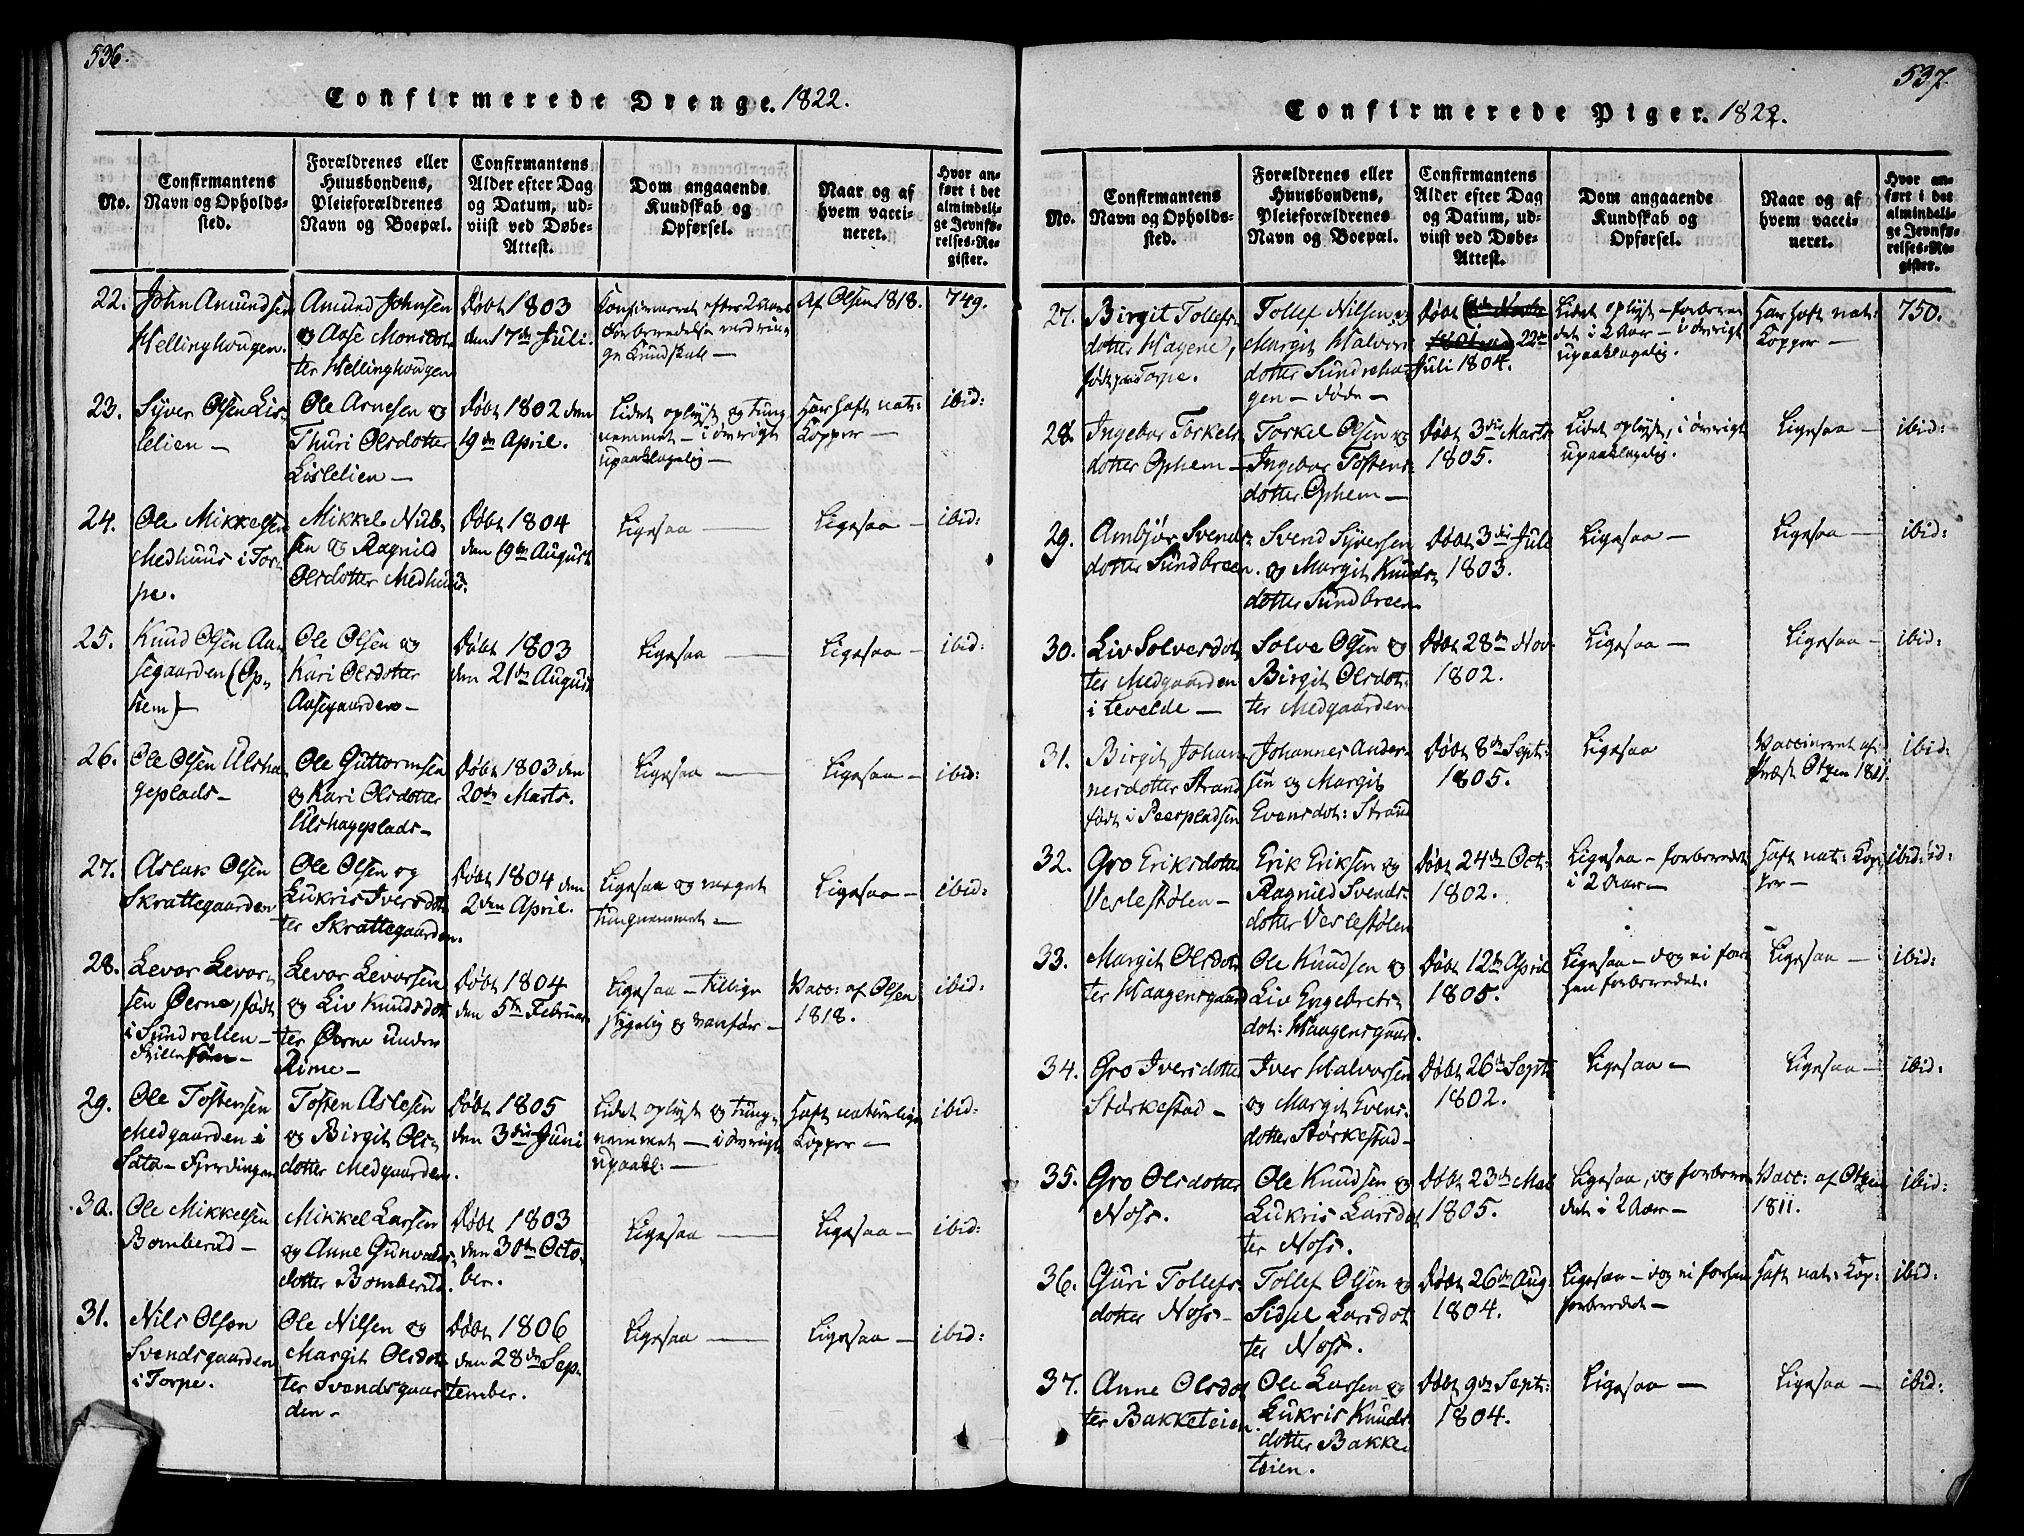 536.
Confirmerede Drenge. 1822.
No.
Confirmantens
Navn og Opholds-
sted.
Forældrenes eller
Huusbondens,
Pleieforældrenes
Navn og Boepæl.
Confirmantens
Alder efter Dag
og Datum, ud-
viist ved Døbe-
Attest.
Dom angaaende
Kundskab og
Opførsel.
Naar og af
hvem vacci-
neret.
Hvor an-
ført i det
almindeli-
ge Jevnfø-
relses-Re-
gister.
22.
John Amundsen
Hellinghougen.
Amund Johnsen
og Aase Monsdot-
ter Hellinghougen
Døbt 1803
den 17de Juli.
Confirmeret efter 2 Aars
Forberedelse med rin-
ge Kundskab —
Af Olsen 1818.
749.
23.
Syver Olsen Lis-
lelien —
Ole Arnesen og
Thuri Olsdotter
Lislelien —
Døbt 1802 den
19de April.
Lidet oplyst og tung-
nemmet — i øvrigt
upaaklagelig —
Har haft nat:
Kopper —
ibid:
24.
Ole Mikkelsen
Medhuus i Tor-
pe.
Mikkel Nub-
sen og Ragnild
Olsdotter Medhuus.
Døbt 1804
den 19de August
Ligesaa —
Ligesaa —
ibid:
25.
Knud Olsen Aa-
segaarden (Op-
hem) —
Ole Olsen og
Kari Olsdotter
Aasegaarden —
Døbt 1803
den 21de August
Ligesaa —
Ligesaa —
ibid:
26.
Ole Olsen Ulsha-
geplads —
Ole Guttormsen
og Kari Olsdotter
Ulshageplads —
Døbt 1803 den
20de Marts.
Ligesaa —
Ligesaa —
ibid:
27.
Aslak Olsen
Skrattegaarden
Ole Olsen og
Lukris Iversdot-
ter Skrattegaarden.
Døbt 1804 den
2den April.
Ligesaa og meget
tungnemmet —
Ligesaa —
ibid:
28.
Levor Levor-
sen Øerne, født
i Sundrelien —
Levor Levorsen
og Liv Knudsdot-
ter Øerne under
Rime —
Døbt 1804
den 5te Februar
Ligesaa — tillige
sygelig og vanfør —
Vacc: af Olsen
1818.
ibid:
29.
Ole Tostensen
Medgaarden i
Sata-Fjerdingen
Tosten Aslesen
og Birgit Ols-
dotter Medgaarden.
Døbt 1805
den 3die Juni
Lidet oplyst og tung-
nemmet — i øvrigt
upaakl: —
Haft naturlige
Kopper —
ibid:
30.
Ole Mikkelsen
Bomberud —
Mikkel Larsen
og Anne Gunvalds-
dotter Bomberud.
Døbt 1803
den 30te Octo-
ber.
Ligesaa —
Ligesaa —
ibid:
31.
Nils Olsen
Svendsgaarden
i Torpe.
Ole Nilsen og
Margit Olsdot-
ter Svendsgaar-
den —
Døbt 1806
den 28de Sep-
tember.
Ligesaa —
Ligesaa —
ibid:
537.
Confirmerede Piger. 1822.
No.
Confirmantens
Navn og Opholds-
sted.
Forældrenes eller
Huusbondens,
Pleieforældrenes
Navn og Boepæl.
Confirmantens
Alder efter Dag
og Datum, ud-
viist ved Døbe-
Attest.
Dom angaaende
Kundskab og
Opførsel.
Naar og af
hvem vacci-
neret.
Hvor an-
ført i det
almindeli-
ge Jevnfø-
relses-Re-
gister.
27.
Birgit Tollefs-
dotter Hagene,
født paa Torpe.
Tollef Nilsen og
Margit Halvors-
dotter Sundreha-
gen — døde —
Døbt
22de
Juli 1804.
Lidet oplyst — forbere-
det i 2 Aar — i øvrigt
upaaklagelig.
Har haft nat:
Kopper —
750.
28.
Ingebor Torkels-
dotter Ophem —
Torkel Olsen og
Ingebor Tostens-
dotter Ophem —
Døbt 3die Marts
1805.
Lidet oplyst, i øvrigt
upaaklagelig.
Ligesaa —
ibid:
29.
Ambjør Svends-
dotter Sundbreen.
Svend Syversen
og Margit Knuds-
dotter Sundbreen
Døbt 3die Juli
1803.
Ligesaa —
Ligesaa —
ibid:
30.
Liv Solvesdot-
ter Medgaarden
i Levelde —
Solve Olsen og
Birgit Olsdot-
ter Medgaarden
Døbt 28de Nov
1802.
Ligesaa —
Ligesaa —
ibid:
31.
Birgit Johan-
nesdotter Strand
født i Peerpladsen
Johannes Ander-
sen og Margit
Evensdot: Strand
Døbt 8de Sept:
1805.
Ligesaa
Vaccineret af
Præst Otzen 1811.
ibid:
32.
Gro Eriksdotter
Veslestølen —
Erik Eriksen og
Ragnild Svends-
dotter Veslestølen
Døbt 24de Oct:
1802.
Ligesaa — forberedet
i 2 Aar —
Haft nat: Kop-
per —
ibid:
33.
Margit Olsdot-
ter Haagensgaard
Ole Knudsen og
Liv Engebrets-
dot: Haagensgaard.
Døbt 12te April
1805.
Ligesaa — dog ei for-
hen forberedet.
Ligesaa —
ibid:
34.
Gro Iversdotter
Størkestad —
Iver Halvorsen
og Margit Evens-
dotter Størkestad —
Døbt 26de Sept:
1802.
Ligesaa —
Ligesaa —
ibid:
35.
Gro Olsdotter
Noss.
Ole Knudsen og
Lukris Larsdot-
ter Noss.
Døbt 23de Mai
1805.
Ligesaa, og forbere-
det i 2 Aar —
Vacc: af Otzen
1811.
ibid:
36.
Guri Tollefs-
dotter Noss —
Tollef Olsen og
Sidsel Larsdot-
ter Noss.
Døbt 26de Aug:
1804.
Ligesaa — dog ei forhen
forberedet —
Haft nat: Kop:
ibid:
37.
Anne Olsdot-
ter Bakketeien.
Ole Larsen og
Lukris Knuds-
dotter Bakke-
teien.
Døbt 9de Sept:
1804.
Ligesaa —
Ligesaa —
ibid: